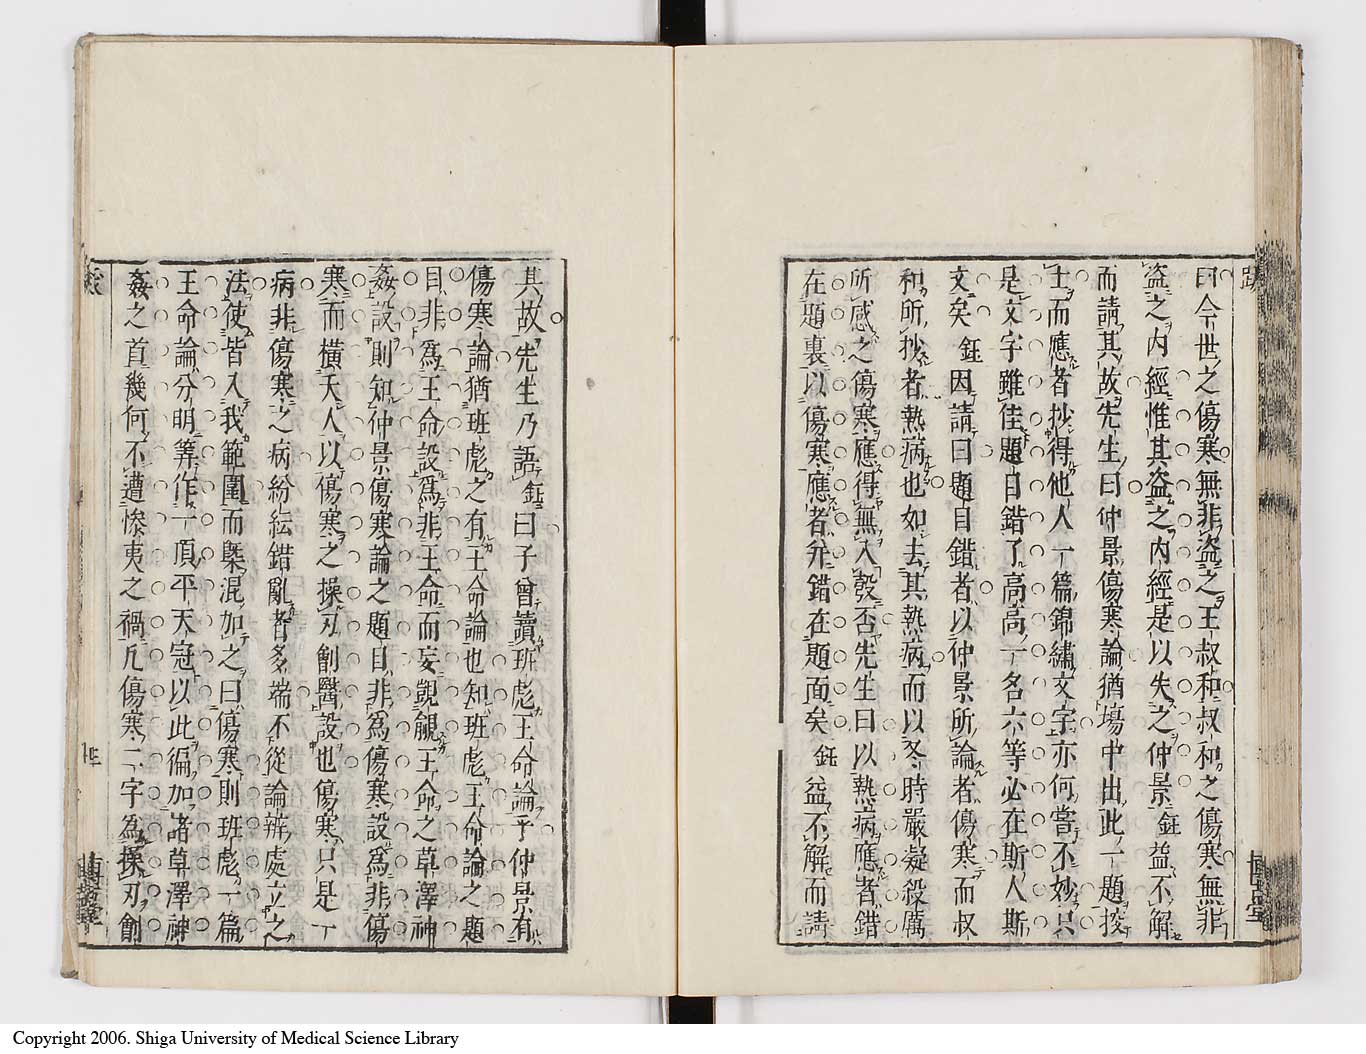 曰今世之傷寒無非盗之王叔和叔和之傷寒無非
盗之内經惟其盗之内經是以失之仲景鉦益不解
而請其故先生曰仲景傷寒論猶塲中出此一題挍
士而應者抄得他人一篇錦繡文字亦何嘗不妙只
是文字雖佳題目錯了高高一名六等必在斯人斯
文矣鉦因請曰題目錯者以仲景所論者傷寒而叔
和所抄者熱病也如去其熱病而以冬時嚴凝殺厲
所感之傷寒應得無入彀否先生曰以熱病應者錯
在題裏以傷寒應者弁錯在題面矣鉦益不解而請
其故先生乃語鉦曰子曾讀班彪王命論乎仲景有
傷寒論猶班彪之有王命論也知班彪王命論之題
目非爲王命設爲非王命而妄覬覦王命之草澤神
姦設則知仲景傷寒論之題目非爲傷寒設爲非傷
寒而橫夭人以傷寒之操刃創醫設也傷寒只是一
病非傷寒之病紛紜錯亂者多端不從論辨處立之
法使皆入我範圍而槩混加之曰傷寒則班彪一篇
王命論分明筭作一頂平天冠以此徧加諸草澤神
姦之首幾何不遭慘夷之禍凡傷寒二字爲操刃創
Copyright 2006. Shiga University of Medical Science Library